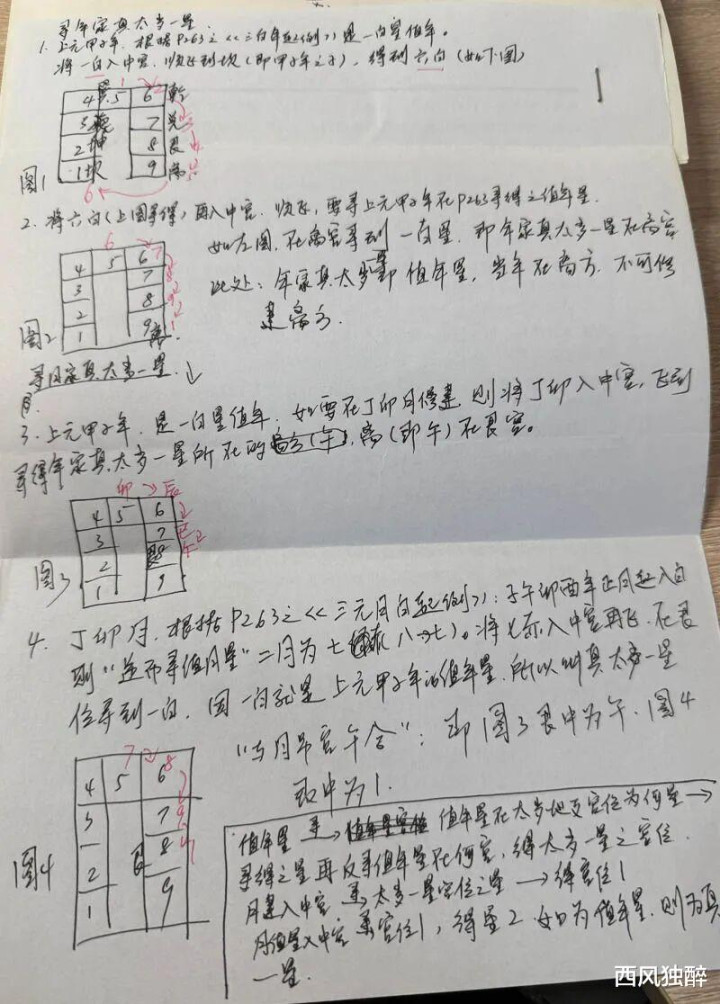 寻年家真太岁一星
1. 上元甲子年, 根据P263之<<三白年起例>>是一白星值年。
将一白入中宫, 顺飞到坎(即甲子年之子), 得到六白(如下图)
1
4 5 6 乾
3 7 兑
2 坤 8 艮
1 坎 9 离
图1
6
2. 将六白(上图寻得)再入中宫, 顺飞, 要寻上元甲子年在P263寻得之值年星
如左图, 在离宫寻到一白星, 即年家真太岁一星在离宫
6
4 5 6 7
3 7 8
2 8 9
1 9 1
图2
此处: 年家真太岁即值年星, 当年在离方, 不可修建离方.
寻月家真太岁一星
3. 上元甲子年, 是一白星值年, 如要在丁卯月修建, 则将丁卯入中宫, 飞到
寻得年家真太岁一星所在的离(即午)在艮宫。
卯 辰
4 5 6
3 7 巳
2 8 午
1 9
图3
4. 丁卯月, 根据P263之<<三元月白起例>>: 子午卯酉年正月起八白
则"逆而寻值月星"二月为七(八→七)。将七赤入中宫再飞, 在艮
位寻到一白, 因一白就是上元甲子年的值年星, 所以叫真太岁一星
"与月吊宫午合": 即图3艮中为午, 图4
艮中为1.
7 8
4 5 6
3 7 9
2 8 1
1 9
图4
值年星 寻→ 值年星在太岁地支宫位为何星→
寻得之星再反寻值年星在何宫, 得太岁一星之宫位
月建入中宫 寻 太岁一星宫位之星 → 得宫位1
月值星入中宫 寻宫位1, 得星2. 如为值年星, 则为真
一星.
西风独醉